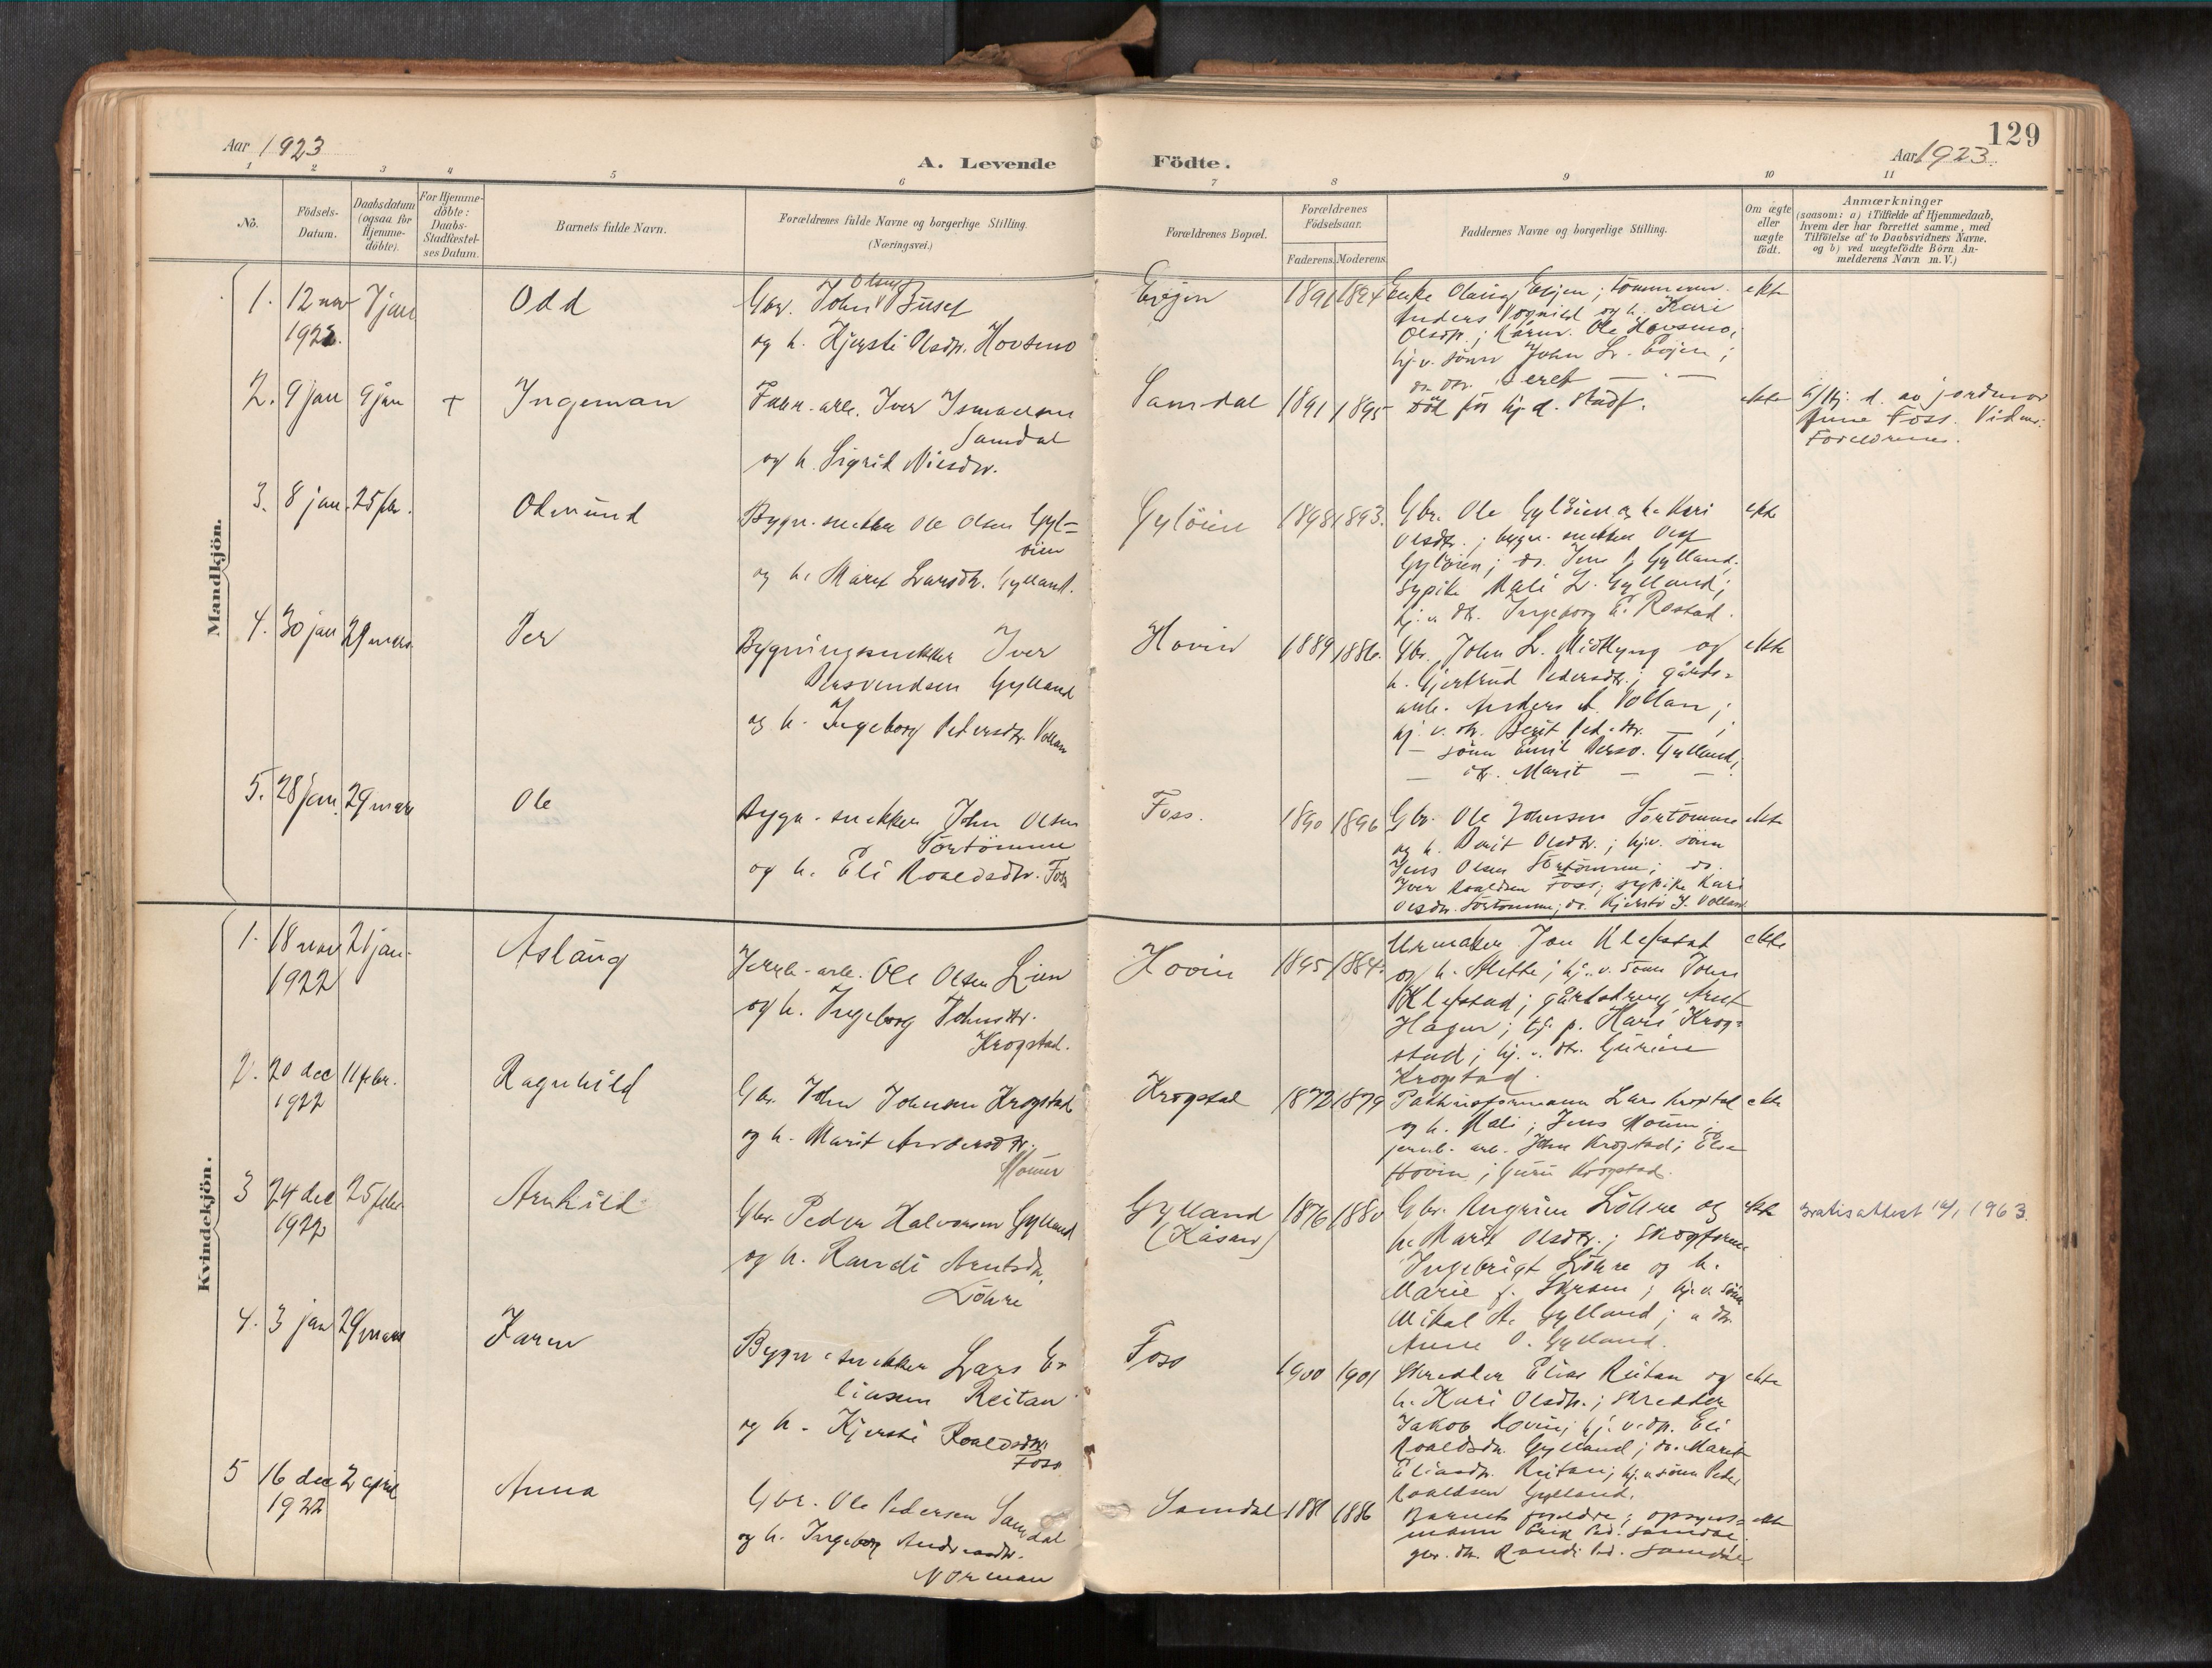 129
Aar 1923
A. Levende Födte.
Aar 1923.
1 2 3 4 5 6 7 8 9 10 11
No.
Födsels-
Datum.
Daabsdatum
(ogsaa for
Hjemme-
döbte).
For Hjemme-
döbte:
Daabs-
Stadfæstel-
ses Datum.
Barnets fulde Navn.
Forældrenes fulde Navne og borgerlige Stilling.
(Næringsvei.)
Forældrenes Bopæl.
Forældrenes
Födselsaar.
Faderens. Moderens.
Faddernes Navne og borgerlige Stilling.
Om ægte
eller
uægte
födt.
Anmærkninger
(saasom: a) i Tilfælde af Hjemmedaab,
hvem der har forrettet samme, med
Tilföielse af to Daabsvidners Navne.
og b) ved uægtefödte Börn An-
melderens Navn m. V.)
Mandkjön.
1. 12 nov 7 jan Odd
1922.
Gbr. John Buset
og h. Kjersti Olsdtr. Hovsmo
1891 1894
Anders Vognild og h. Kari
Ole Hovsmo;
hj.v. sönn John
ekte
2. 9 jan 9 jan + Ingeman
Iver
Samdal
og h. Sigrid Nilsdtr.
Samdal 1891 1895
Död för hj.d. stadf.
ekte
hj. d. av jordmor
Anne Foss. Vidner:
Foreldrene.
3. 8 jan. 25 febr. Odmund
Bygn.snekker Ole Olsen Gyl-
öien
og h. Marit Larsdtr. Gylland.
Gylöien 1898 1893.
Gbr. Ole Gylöien og h. Kari
Olsdtr.; bygn.snekker
Gylöien; do. Jens L. Gylland;
sypike Mali L. Gylland;
hj.v. dtr. Ingeborg E. Rostad.
ekte
4. 30 jan 29 mars Per
Bygningssnekker Iver
Persvendsen Gylland
og h. Ingeborg Pedersdtr. Vollan
Hovin 1889 1886.
Gbr. John L. Midtlyng og
h. Gjertrud Pedersdtr.; gårds-
arb. Anders A. Vollan;
hj.v. dtr. Berit Ped.dtr. — ;
— sönn Emil Persv. Gylland;
— dtr. Marit — —
ekte
5. 28 jan. 29 mars Ole
Bygn.snekker John Olsen
Sörtömme
og h. Eli Roaldsdtr. Foss
Foss. 1890 1896
Gbr. Ole Johnsen Sörtömme
og h. Berit Olsdtr.; hj.v. sönn
Jens Olsen Sörtömme; do.
Iver Roaldsen Foss; sypike Kari
Olsdtr. Sörtömme; do. Kjersti J. Vollan
ekte
Kvindekjön.
1. 18 nov 21 jan. Aslaug
1922
Jernb.arb. Ole Olsen Lien
og h. Ingeborg Johnsdtr.
Krogstad.
Hovin 1884.
Urmaker Jon Klefstad
og h. hj.v. sönn John
Klefstad; Arnt
Hagen; tj.p. Kari Krog-
stad; hj.v. dtr. Gurine
Krogstad.
ekte
2. 20 dec 11 febr. Ragnhild
1922
Gbr. John Johnsen Krogstad
og h. Marit Andersdtr.
Krogstad 1872 1879
Lars Krogstad
og h. Mali; Jens
jernb.arb. John Krogstad;
Hovin; Guru Krogstad.
ekte
3 24 dec 25 febr. Arnhild
1922
Gbr. Peder Halvorsen Gylland
og h. Randi Arntsdtr.
Löhre
Gylland
(Kåsan)
1876 1880
Gbr. Löhre og
h. Marit Olsdtr.;
Ingebrigt Löhre og h.
Marie f. hj.v. sönn
Mikal A. Gylland;
Anne O. Gylland.
ekte
Gratisattest 1963.
4. 3 jan 29 mars Karen
Bygn.snekker Lars E-
liasen Reitan
og h. Kjersti Roaldsdtr.
Foss
Foss 1900 1901
Skredder Elias Reitan og
h. Kari Olsdtr.; skredder
Jakob Hovin; Eli
Roaldsdtr. Gylland; do. Marit
Eliasdtr. Reitan; hj.v. sönn Peder
Roaldsen Gylland.
ekte
5 16 dec 2 april Anna
1922
Gbr. Ole Pedersen Samdal
og h. Ingeborg Andreasdtr.
Norman
Samdal 1881 1886
Barnets foreldre; opsyns-
mann Erik Ped. Samdal
gbr. dtr. Randi Ped. Samdal
ekte